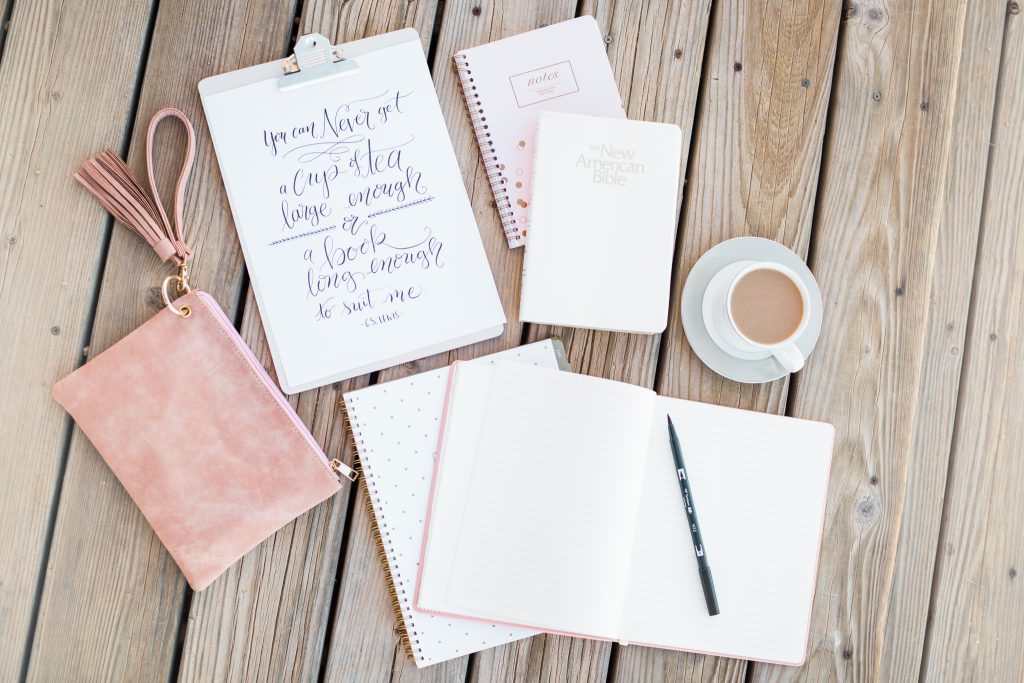 You can Never get
a Cup of tea
large enough
or
a book
long enough
to suit me.
-C.S. LEWIS-
notes
THE New
American
Bible